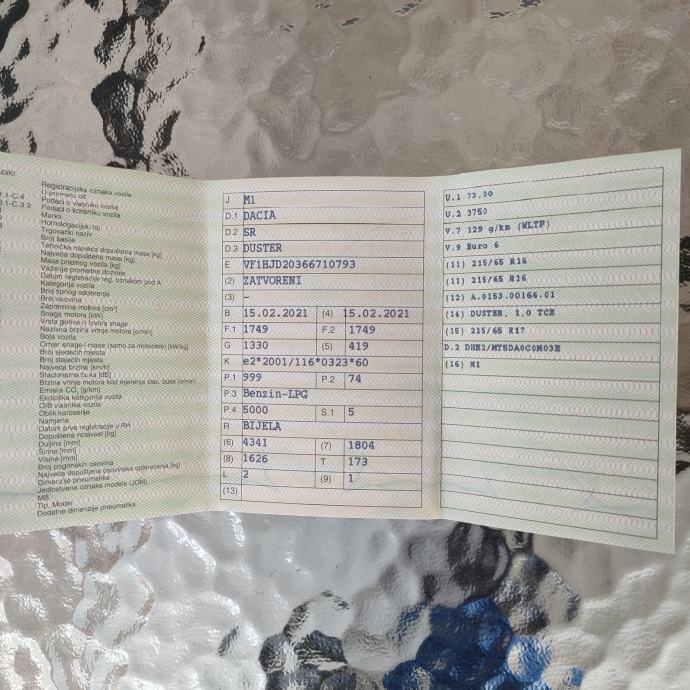 zalo:
Registracijska oznaka vozila
U prometu od
Podaci o vlasniku vozila
Podaci o korisniku vozila
Marka
Homologacijski tip
Trgovački naziv
Broj šasije
Tehnička najveća dopuštena masa [kg]
Najveća dopuštena masa [kg]
Masa praznog vozila [kg]
Važenje prometne dozvole
Datum registracije reg. oznakom pod A
Kategorija vozila
Broj tipnog odobrenja
Broj osovina
Zapremina motora [cm³]
Snaga motora [kW]
Vrsta goriva ili izvora snage
Nazivna brzina vrtnje motora [o/min]
Boja vozila
Omjer snage i mase (samo za motocikle) [kW/kg]
Broj sjedećih mjesta
Broj stajaćih mjesta
Najveća brzina [km/h]
Stacionarna buka [dB]
Brzina vrtnje motora kod mjerenja stac. buke [o/min]
Emisija CO₂ [g/km]
Ekološka kategorija vozila
OIB vlasnika vozila
Oblik karoserije
Namjena
Datum prve registracije u RH
Dopuštena nosivost [kg]
Duljina [mm]
Širina [mm]
Visina [mm]
Broj pogonskih osovina
Najveća dopuštena osovinska opterećenja [kg]
Dimenzije pneumatika
Jedinstvena oznaka modela (JOM)
MB
Tip, Model
Dodatne dimenzije pneumatika
J M1
D.1 DACIA
D.2 SR
D.3 DUSTER
E VF1HJD20366710793
(2) ZATVORENI
(3) –
B 15.02.2021 (4) 15.02.2021
F.1 1749 F.2 1749
G 1330 (5) 419
K e2*2001/116*0323*60
P.1 999 P.2 74
P.3 Benzin-LPG
P.4 5000 S.1 5
R BIJELA
(6) 4341 (7) 1804
(8) 1626 T 173
L 2 (9) 1
(13)
U.1 73,00
U.2 3750
V.7 129 g/km (WLTP)
V.9 Euro 6
(11) 215/65 R16
(11) 215/65 R16
(12) A.0153.00166.01
(14) DUSTER, 1,0 TCE
(15) 215/65 R17
D.2 DHM2/MT5DA0C0M03E
(16) M1